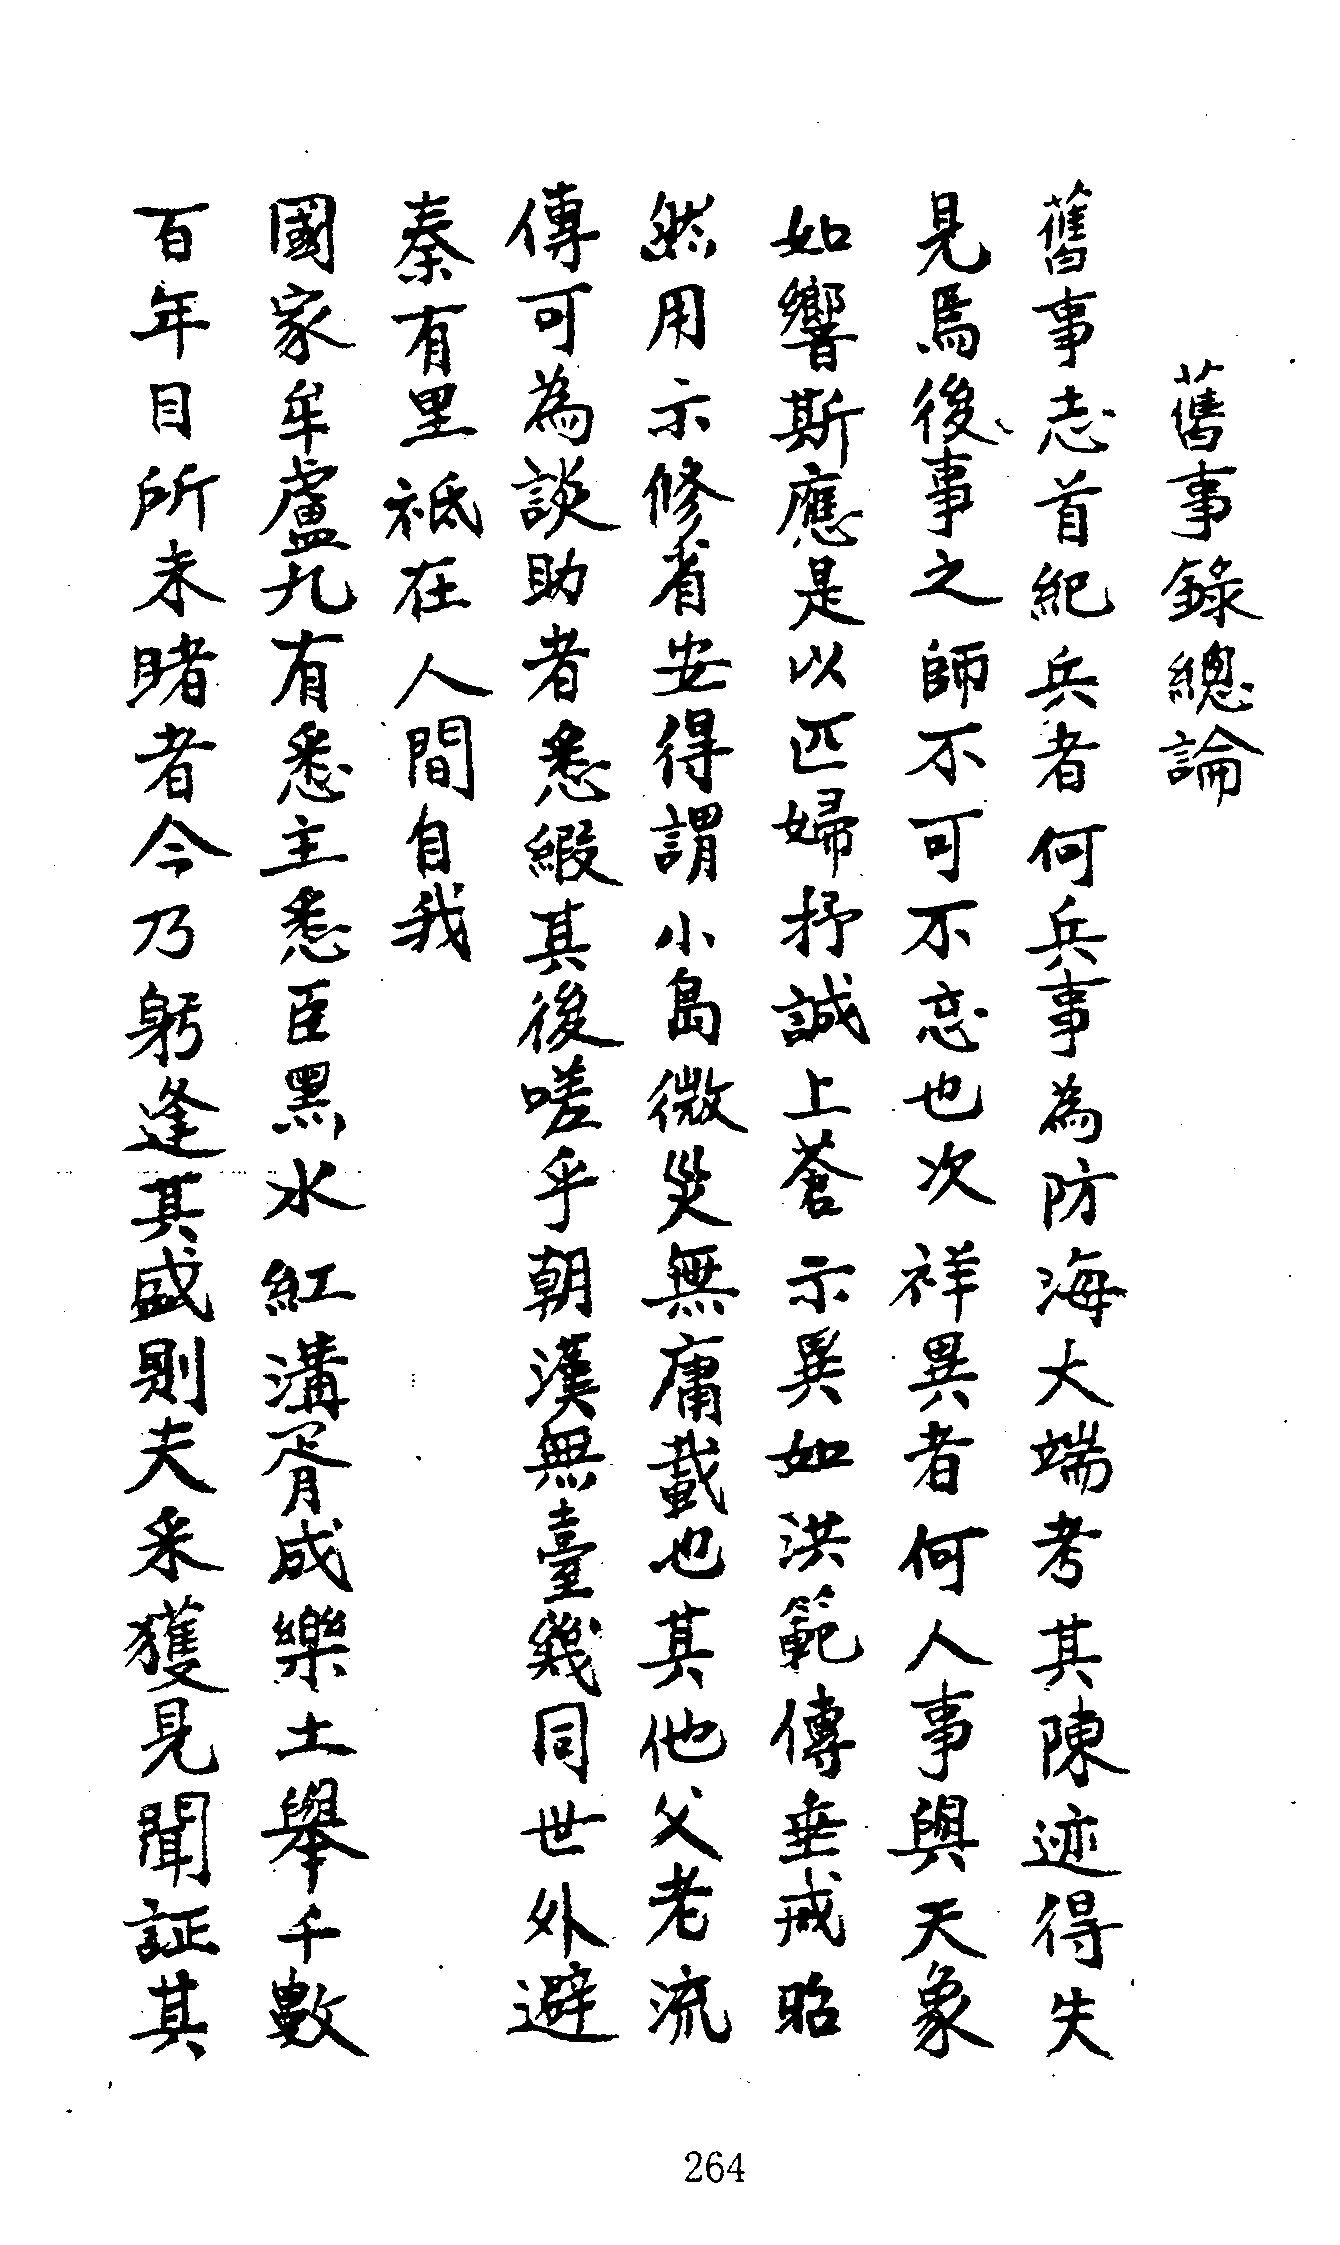 舊事錄總論
舊事志首紀兵者何兵事為防海大端考其陳迹得失
見焉後事之師不可不忘也次祥異者何人事與天象
如響斯應是以匹婦抒誠上蒼示異如洪範傳垂戒昭
然用示修省安得謂小島微災無庸載也其他父老流
傳可為談助者悉綴其後嗟乎朝漢無臺幾同世外避
秦有里祗在人間自我
國家牟盧九有悉主悉臣黑水紅溝胥成樂土舉千數
百年目所未睹者今乃躬逢其盛則夫采獲見聞証其
264